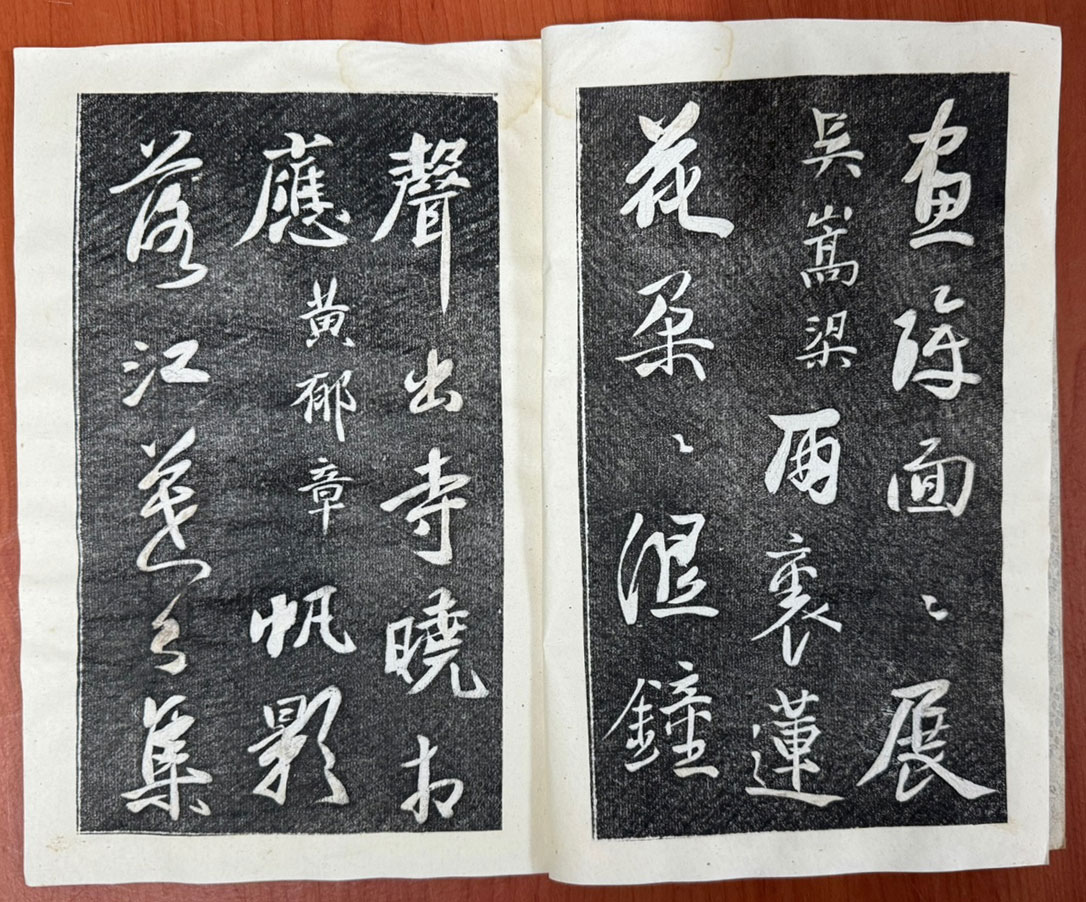 畫障面〻展
吳嵩梁 雨裏蓮
花朵〻湿鐘
聲出寺曉相
應 黃郁章 帆影
落江暮集